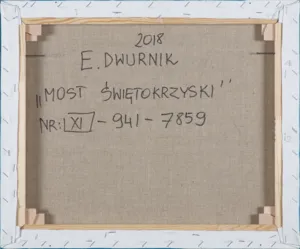 2018
E. DWURNIK
„MOST ŚWIĘTOKRZYSKI"
NR: XI - 941 - 7859